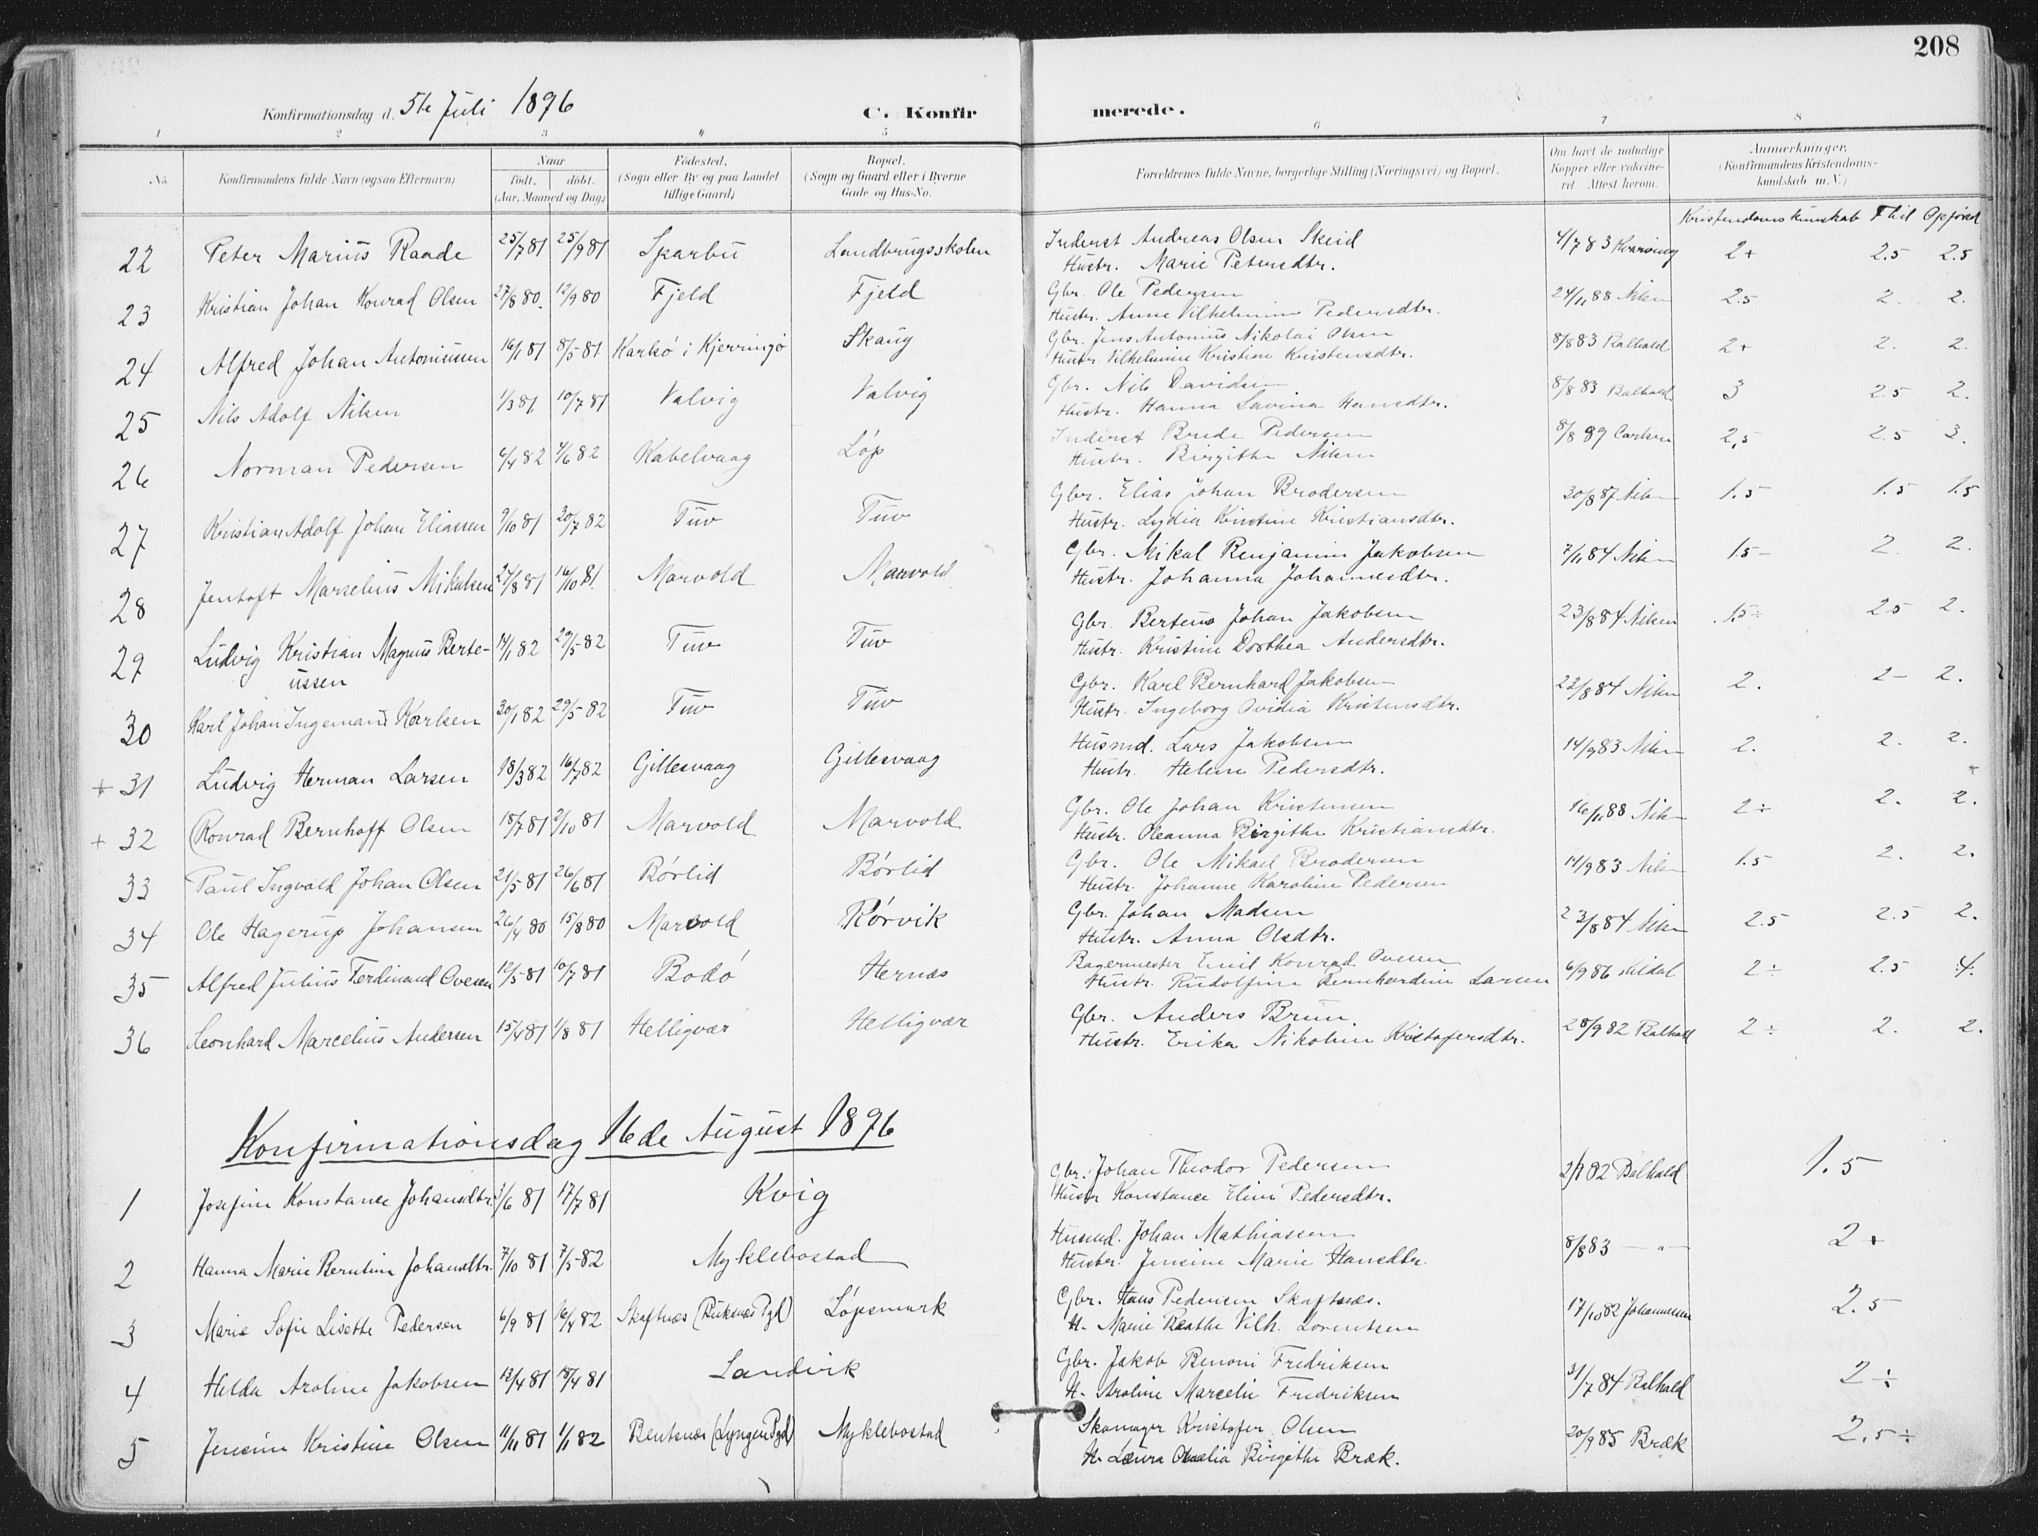 208
Konfirmationsdag d. 5te Juli 1896 C. Konfirmerede.
1 2 3 4 5 6 7 8
No. Konfirmandens fulde Navn (ogsaa Efternavn) Naar født. døbt. (Aar, Maaned og Dag) Fødested. (Sogn eller By og paa Landet tillige Gaard) Bopæl. (Sogn og Gaard eller i Byerne Gade og Hus-No. Forældrenes fulde Navne, borgerlige Stilling (Næringsvei) og Bopæl. Om havt de naturlige Kopper eller vakcineret Attest herom. Anmærkninger. (Konfirmandens Kristendomskundskab m.V.)
Kristendomskunskab Flid Opførsel
22 Peter Marius Raade 25/7 81 25/9 81 Sparbu Landbrugsskolen Inderst Andreas Olsen Skeid 4/7 83 2+ 2.5 2.5
Hustr. Marie Petersdtr.
23 Kristian Johan Konrad Olsen 27/8 80. 12/9 80 Fjeld Fjeld Gbr. Ole Pedersen 24/11 88 Nilsen 2.5 2. 2.
Hustr. Anne Vilhelmine Pedersdtr.
24 Alfred Johan Antoniussen 16/1 81 8/5 81 Karlsø i Kjerringø Skaug Gbr. Jens Antonius Nikolai Olsen 8/8 83 Balhald 2+ 2. 2.
Hustr. Vilhelmine Kristine Kristensdtr.
25 Nils Adolf Nilsen 1/3 81 10/7 81 Valvig Valvig Gbr. Nils Davidsen 8/8 83 Balhald 3 2.5 2.
Hustr. Hanna Lavina Hansdtr.
26 Norman Pedersen 6/4 82 4/6 82 Kabelvaag Løp Inderst Brede Pedersen 8/8 89 Carlsen 2,5 2.5 3.
Hustr. Birgithe Nilsen
27 Kristian Adolf Johan Eliassen 9/10 81 30/7 82 Tuv Tuv Gbr. Elias Johan Brodersen 30/8 87 Nilsen 1.5 1.5 1.5
Hustr. Lydia Kirstine Kristiansdtr.
28 Jentoft Marselius Mikalsen 24/8 81 16/10 81. Marvold Marvold Gbr. Mikal Benjamin Jakobsen 7/11 84 Nilsen 1.5- 2. 2.
Hustr. Johanna Johannesdtr.
29 Ludvig Kristian Magnus Berte- 14/1 82 29/5 82 Tuv Tuv Gbr. Berteus Johan Jakobsen 23/8 84 Nilsen 1.5÷ 2.5 2.
ussen Hustr. Kristine Dorthea Andersdtr.
30 Karl Johan Ingemand Karlsen 30/1 82 29/5 82 Tuv Tuv Gbr. Karl Bernhard Jakobsen 23/8 84 Nilsen 2. 2- 2.
Hustr. Ingeborg Ovidia Kristensdtr.
+ 31 Ludvig Herman Larsen 18/3 82 16/7 82 Gillesvaag Gillesvaag Husmd. Lars Jakobsen 14/9 83 Nilsen 2. 2. 2.
Hustr. Helene Pedersdtr.
+ 32 Konrad Bernhoff Olsen 18/7 81 2/10 81 Marvold Marvold Gbr. Ole Johan Kristensen 16/11 88 Nilsen 2÷ 2. 2.
Hustr. Oleanna Birgithe Kristiansdtr.
33 Paul Ingvald Johan Olsen 21/5 81 26/6 81 Børlid Børlid Gbr. Ole Mikael Brodersen 14/9 83 Nilsen 1.5 2. 2.
Hustr. Johanne Karoline Pedersen
34 Ole Hagerup Johansen 26/4 80 15/8 80 Marvold Rørvik Gbr. Johan Madsen 23/8 84 Nilsen 2.5 2.5 2.
Hustr. Anna Olsdtr.
35 Alfred Julius Ferdinand Ovesen 12/5 81 10/7 81 Bodø Hernæs Bagermester Emil Konrad Ovesen 6/9 86 Kildal 2÷ 2.5 4.
Hustr. Rudolfine Bernhardine Larsen
36 Leonhard Marcelius Andersen 15/4 81 1/8 81 Helligvær Helligvær Gbr. Anders Bruun. 28/9 82 Balhald 2÷ 2. 2.
Hustr. Erika Nikoline Kristofersdtr.
Konfirmationsdag 16de August 1896
1 Josefine Konstance Johansdtr. 3/6 81 17/7 81 Kvig Gbr. Johan Theodor Pedersen 2/1 82 Balhald 1.5
Hustr Konstance Eline Pedersdtr.
2 Hanna Marie Berntine Johansdtr. 7/10 81 7/5 82 Myklebostad Husmd. Johan Mathiassen 8/8 83 — " — 2+
Hustr. Jensine Marie Hansdtr.
3 Marie Sofie Lisette Pedersen 6/9 81 16/4 82 Skaftnæs (Buksnæs Pgd) Løpsmark Gbr. Hans Pedersen Skaftnæs. 17/10 82 Johannesen 2.5
H. Marie Beathe Vilh. Lorentsen
4 Helda Aroline Jakobsen 12/4 81 18/4 81 Landvik Gbr. Jakob Benoni Fredriksen 31/7 84 Balhald 2÷
H. Aroline Marcelie Fredriksen
5 Jensine Kristine Olsen 11/11 81 1/1 82 Bentsnæs (Lyngen Pgd) Myklebostad Skomager Kristofer Olsen 20/9 85 Bræk 2.5÷
H. Laura Birgithe Bræk.